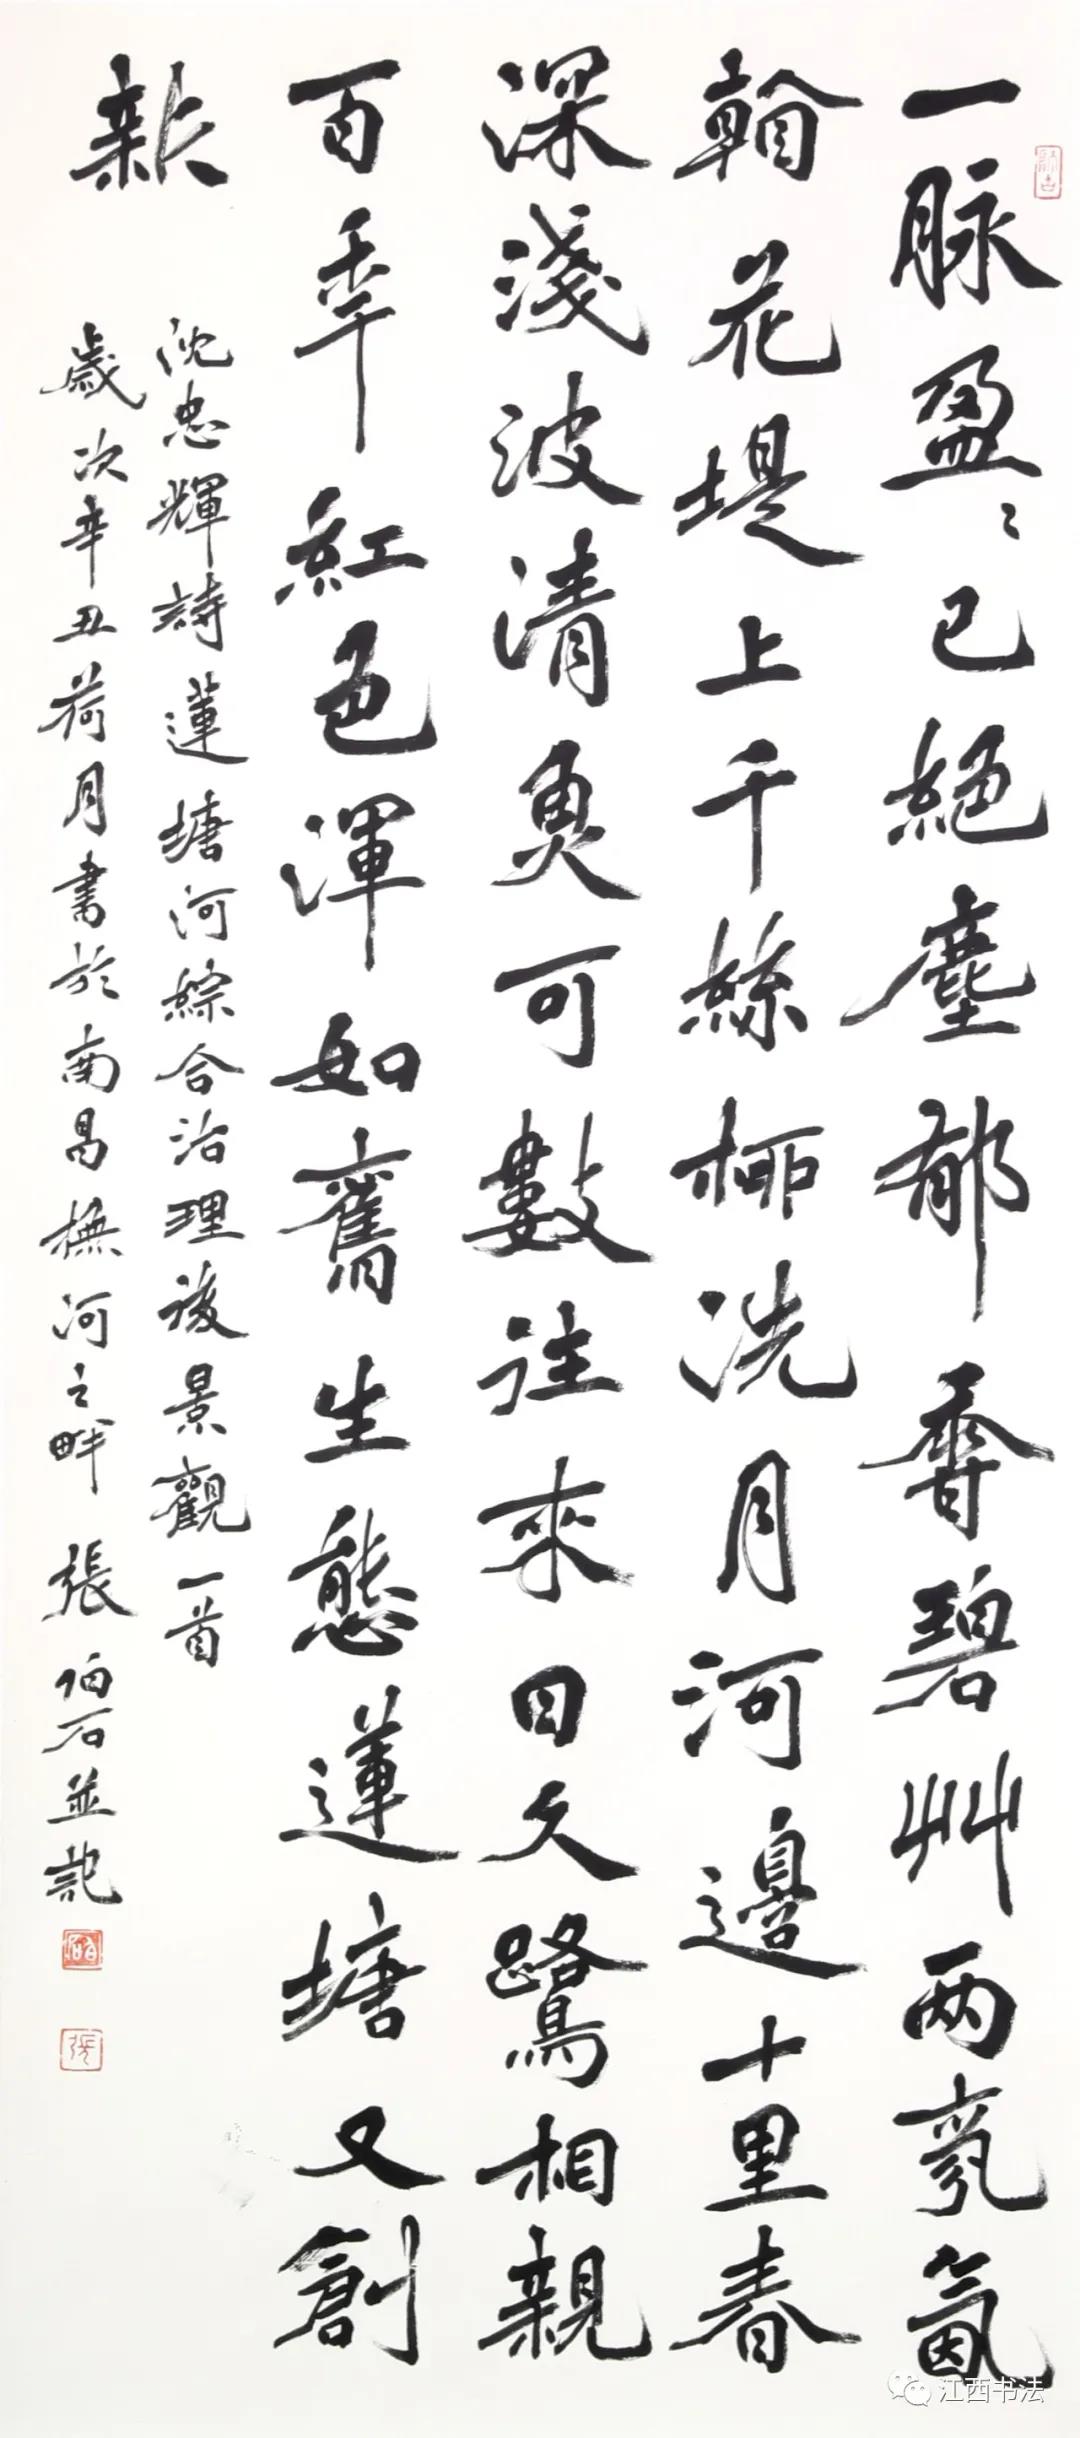 一脉盈〻已絕塵郁香碧艸两氤
翰花堤上千絲柳洗月河邊十里春
深淺波清魚可數往來日久鷺相親
百年紅色渾如舊生態蓮塘又創
新
沈忠輝詩蓮塘河綜合治理後景觀一首
歲次辛丑荷月書於南昌撫河之畔 張伯石並記
張
江西书法